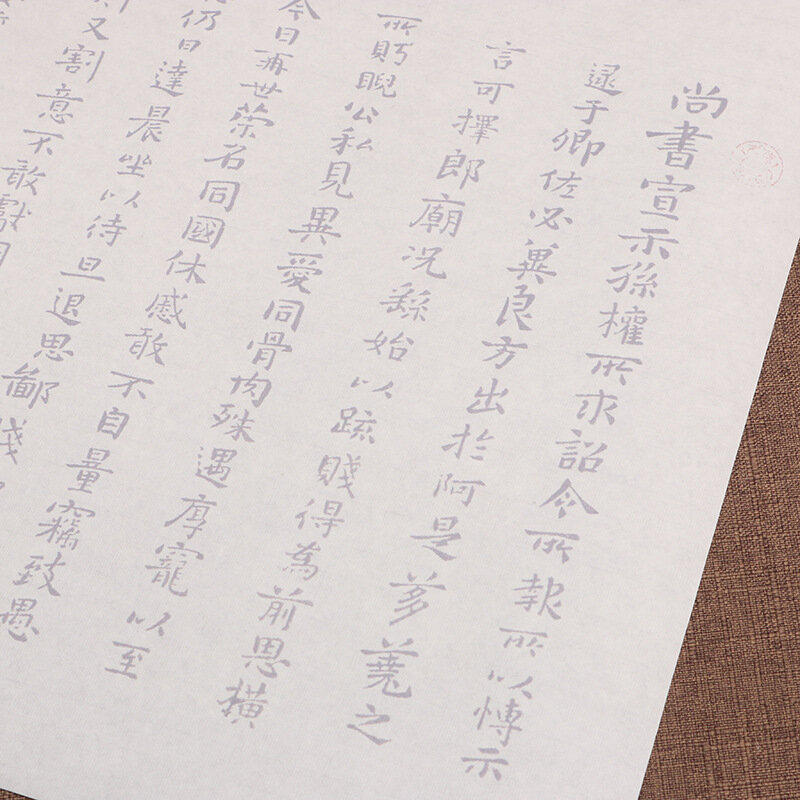 尚書宣示孫權所求詔令所報所以愽示
逮于卿佐必兾良方出於阿是芻蕘之
言可擇郎廟况繇始以疏賤得為前恩橫
所眄睨公私見異愛同骨肉殊遇厚寵以至
今日再世榮名同國休慼敢不自量竊致愚
仍日達晨坐以待旦退思鄙淺
又割意不敢獻